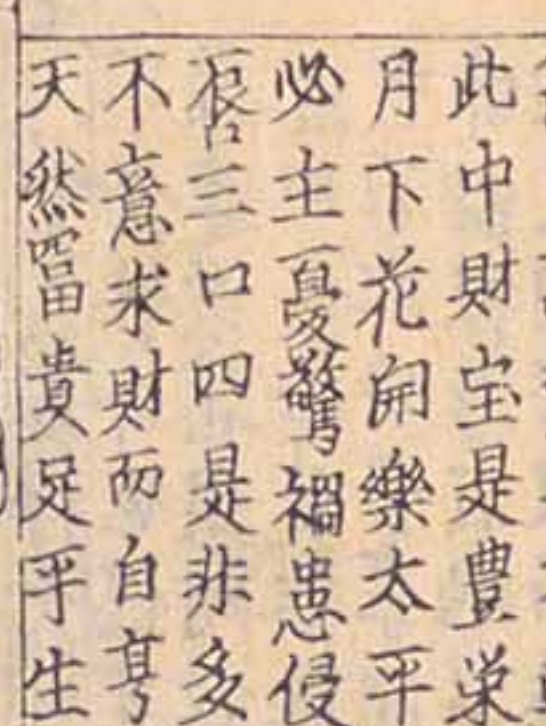 此中財宝是豊栄
月下花開樂太平
必主憂驚禍患侵
三口四是非多
不意求財而自亨
天然富貴足平生